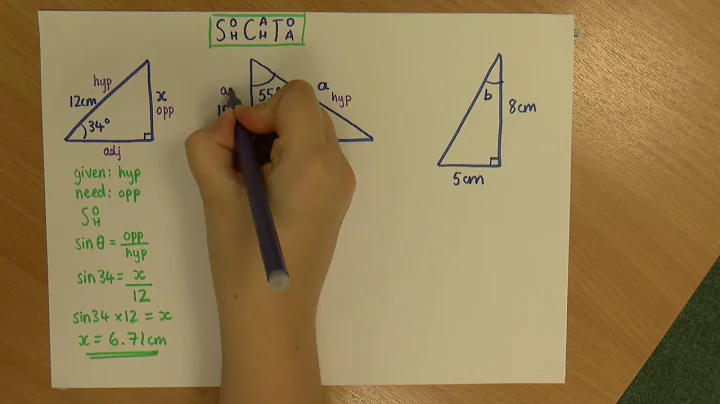 SOH CAH TOA
hyp
12cm
x
opp
34°
adj
given: hyp
need: opp
SOH
sinθ = opp/hyp
sin34 = x/12
sin34 × 12 = x
x = 6.71cm
55°
a
hyp
b
8cm
5cm